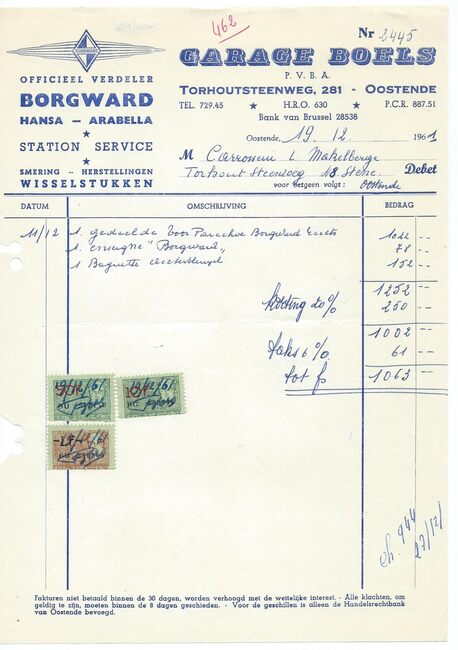 462
Nr 2445
GARAGE BOELS
P. V. B. A.
TORHOUTSTEENWEG, 281 - OOSTENDE
TEL. 729.45 ★ H.R.O. 630 ★ P.C.R. 887.51
Bank van Brussel 28538
BORGWARD
OFFICIEEL VERDELER
BORGWARD
HANSA — ARABELLA
★
STATION SERVICE
★
SMERING -- HERSTELLINGEN
WISSELSTUKKEN
Oostende, 19. 12. 1961
M Carrosserie L Makelberge
Torhout Steenweg Debet
voor hetgeen volgt : Oostende
DATUM OMSCHRIJVING BEDRAG
11/12 1. gedeelde Voor Borgward 1022 --
1. enseigne "Borgward" 78 --
1 Baguette 152 --
1252 --
korting 20% 250 --
1002 --
taks 6% 61 --
tot fr 1063 --
ch. 944
27/12/
Fakturen niet betaald binnen de 30 dagen, worden verhoogd met de wettelijke interest. - Alle klachten, om
geldig te zijn, moeten binnen de 8 dagen geschieden. - Voor de geschillen is alleen de Handelsrechtbank
van Oostende bevoegd.